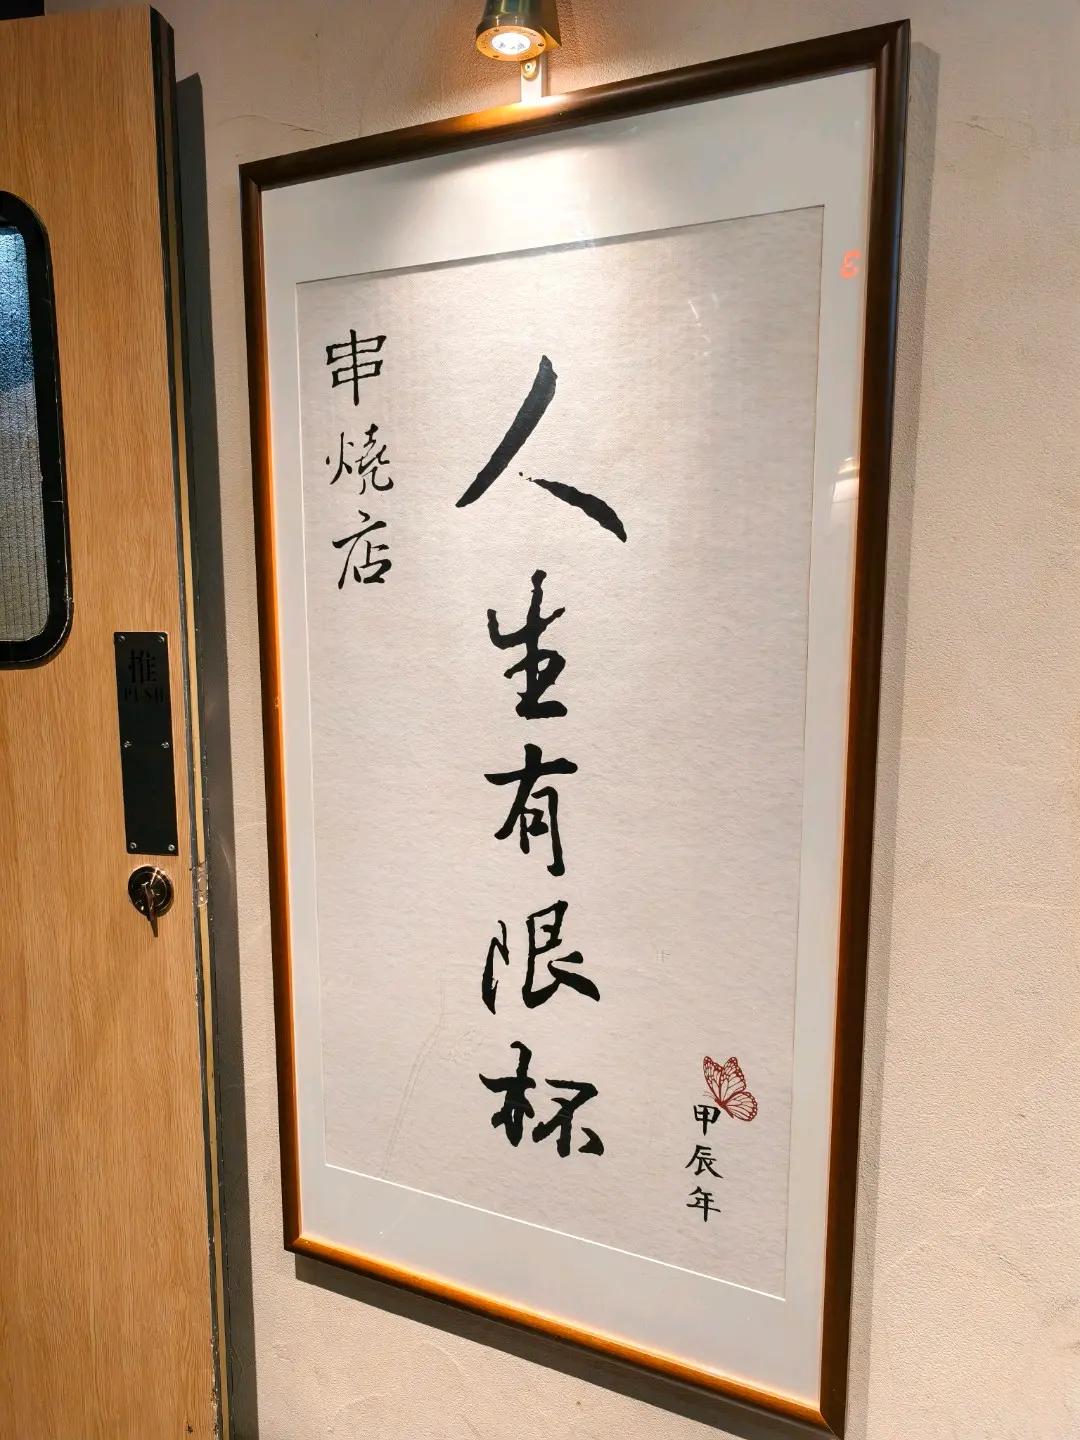 串燒店
人生有限杯
甲辰年
推
PUSH
3